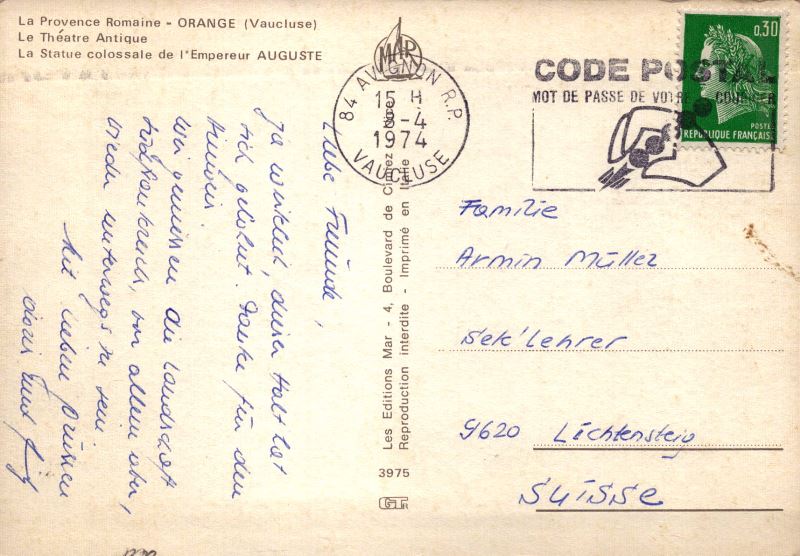 La Provence Romaine - ORANGE (Vaucluse)
Le Théatre Antique
La Statue colossale de l'Empereur AUGUSTE
MAR
84 AVIGNON R.P.
15 H
-4
1974
VAUCLUSE
CODE POSTAL
MOT DE PASSE DE VOTRE COURRIER
0,30
POSTES
REPUBLIQUE FRANÇAISE
Liebe Freunde,
Ja wirklich, dieser Halt hat
sich gelohnt. Danke für den
Hinweis.
Wir geniessen die Landschaft
Südfrankreich, vor allem aber,
wieder unterwegs zu sein
Mit lieben Grüssen
und
Les Editions Mar - 4, Boulevard de Cimiez Nice
Reproduction interdite - Imprimé en Italie
3975
Familie
Armin Müller
Sek'Lehrer
9620 Lichtensteig
SUISSE